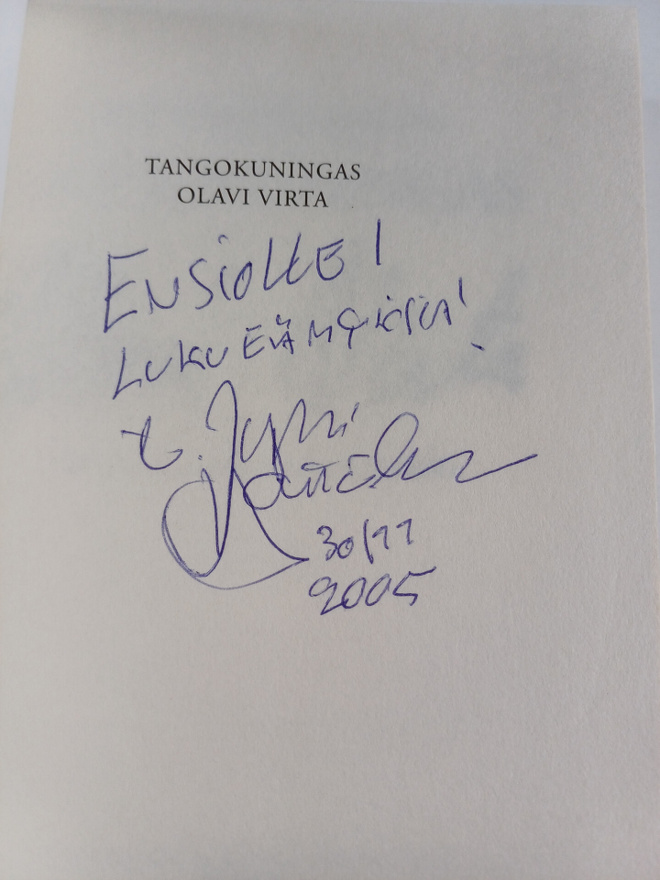 TANGOKUNINGAS
OLAVI VIRTA
ENSIOLLE!
LUKUELÄMYKSIÄ!
t. Jyrki
30/11
2005